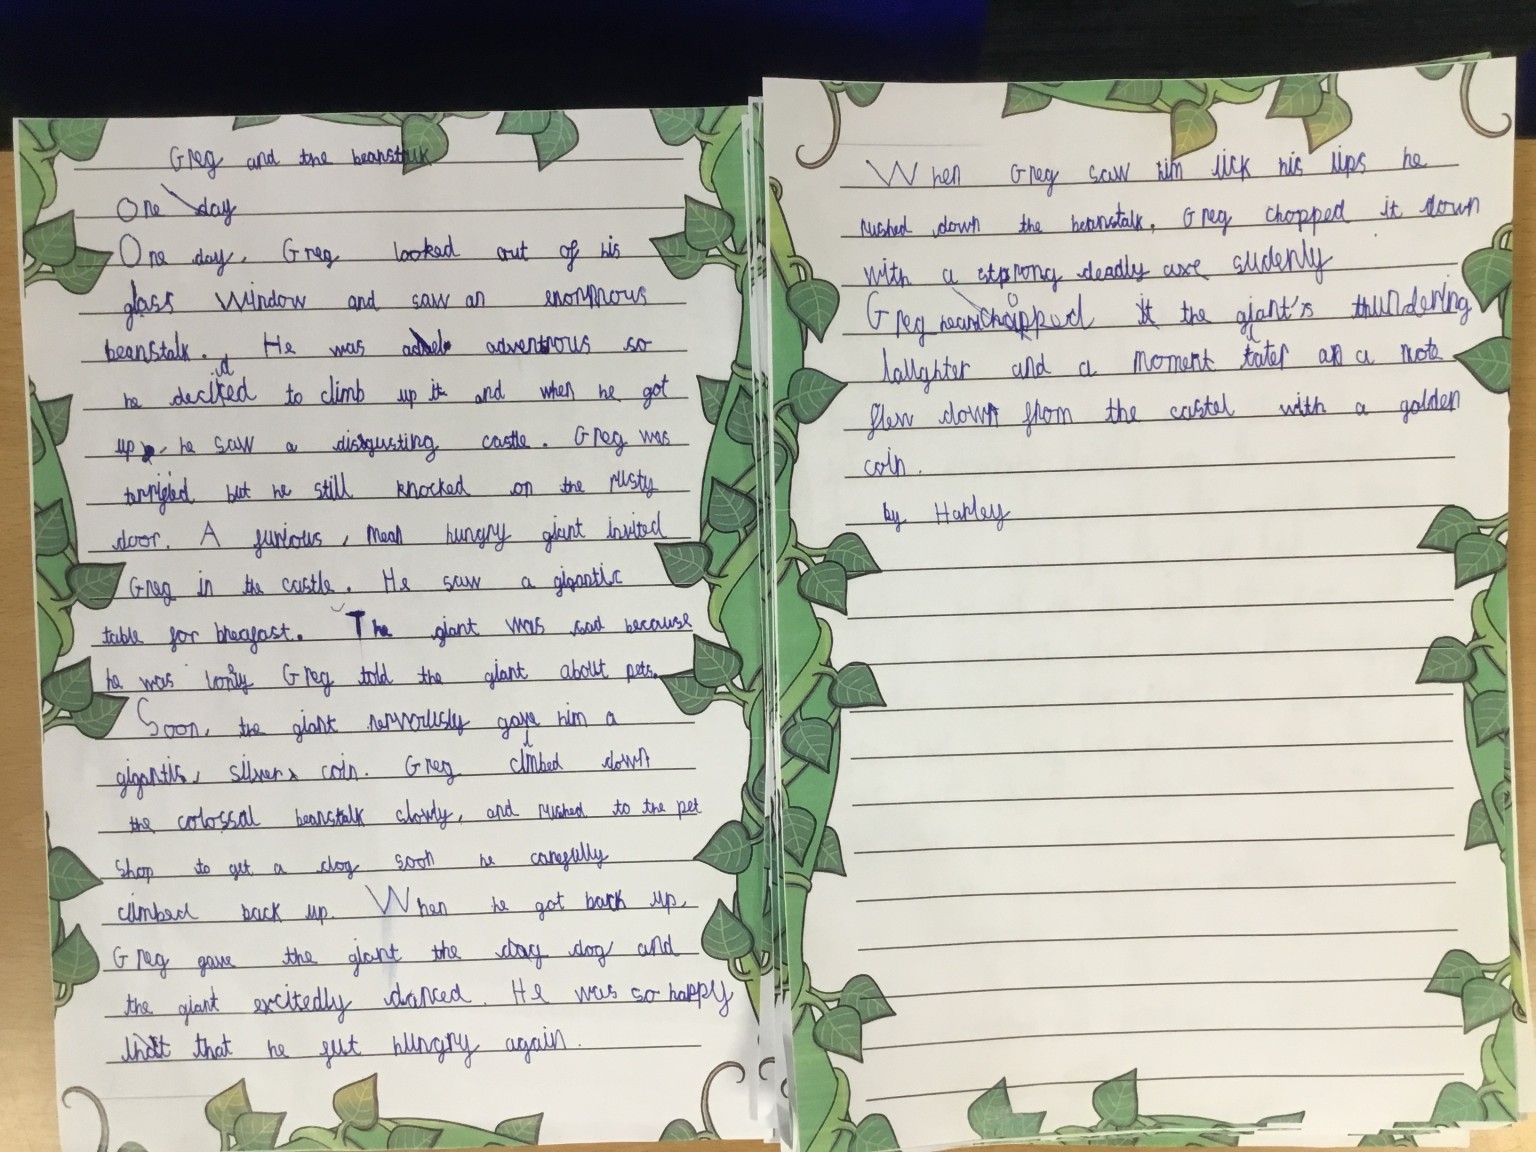 Greg and the beanstalk
One day
One day, Greg looked out of his
glass window and saw an enormous
beanstalk. He was adventrous so
he decided to climb up it and when he got
up, he saw a disgusting castle. Greg was
terrified but he still knocked on the rusty
door. A furious, mean hungry giant invited
Greg in the castle. He saw a gigantic
table for breafast. The giant was sad because
he was lonly Greg told the giant about pets.
Soon, the giant nervorusly gave him a
gigantic, silver coin. Greg climbed down
the colossal beanstalk slowly, and rushed to the pet
shop to get a dog soon he carefully
climbed back up. When he got back up,
Greg gave the giant the dog and
the giant excitedly danced. He was so happy
that that he felt hungry again.
When Greg saw him lick his lips he
rushed down the beanstalk. Greg chopped it down
with a strong deadly axe sudenly
Greg heard the giant's thundering
laughter and a moment later a note
flew down from the castel with a golden
coin.
by Harley